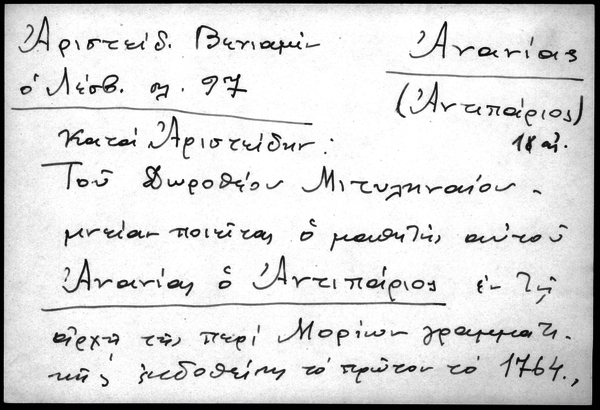 Ἀριστείδ. Βενιαμὶν
ὁ Λέσβ. σλ. 97
Ἀνανίας
(Ἀντιπάριος)
18 αἰ.
Κατὰ Ἀριστείδην:
Τοῦ Δωροθέου Μιτυληναίου -
μνείαν ποιεῖται ὁ μαθητὴς αὐτοῦ
Ἀνανίας ὁ Ἀντιπάριος ἐν τῇ
ἀρχῇ τῆς περὶ Μορίων γραμματι-
κῆς ἐκδοθείσης τὸ πρῶτον τὸ 1764.,